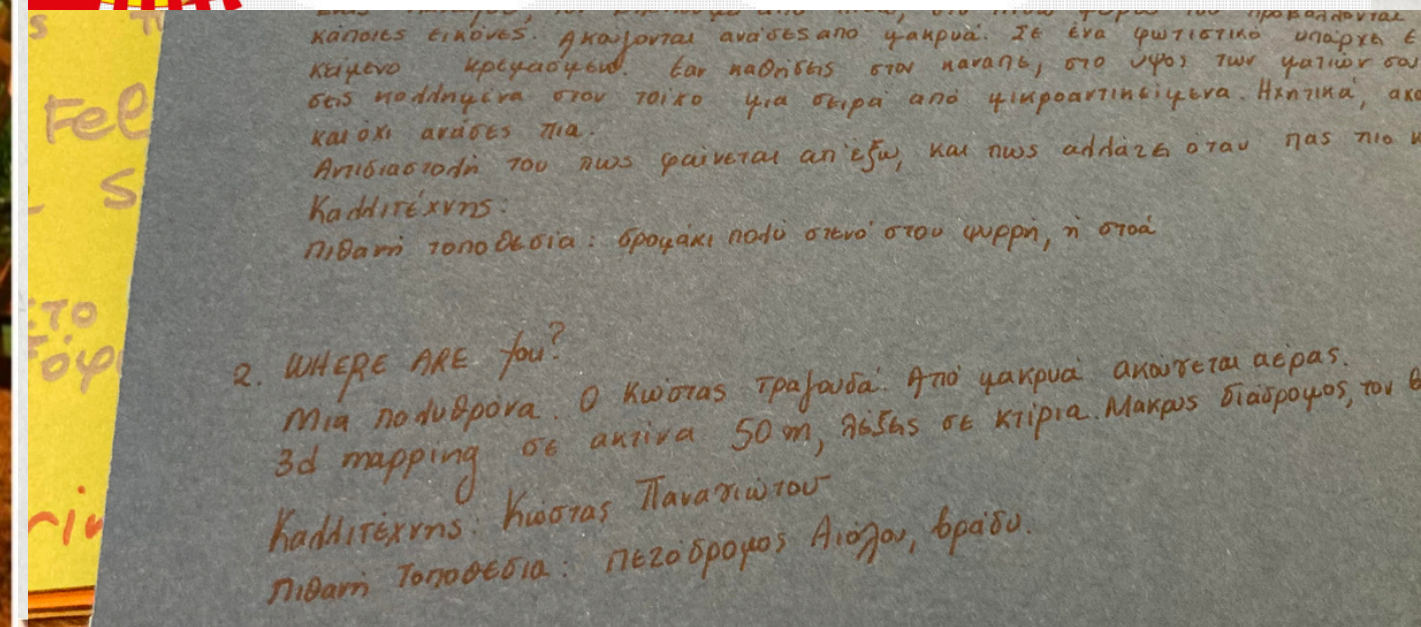 κάποιες εικόνες. Ακούγονται ανάσες από μακρυά. Σε ένα φωτιστικό υπάρχει
κείμενο κρεμασμένο. Εαν καθήσεις στον καναπέ, στο ύψος των ματιών σου
σεις κολλημένα στον τοίχο μια σειρά από μικροαντικείμενα. Ηχητικά,
και όχι ανάσες πια.
Αντιδιαστολή του πως φαίνεται απ' έξω, και πως αλλάζει όταν πας πιο
Καλλιτέχνης:
Πιθανή τοποθεσία: δρομάκι πολύ στενό στου ψυρρή, ή στοά
Fel
S
στο
2. WHERE ARE you?
Μια πολυθρόνα. Ο Κώστας τραγουδά. Από μακρυά ακούγεται αέρας.
3d mapping σε ακτίνα 50 m, λέξεις σε κτίρια. Μακρυς διάδρομος, τον
Καλλιτέχνης: Κώστας Παναγιώτου
Πιθανή Τοποθεσία: πεζόδρομος Αιόλου, βράδυ.